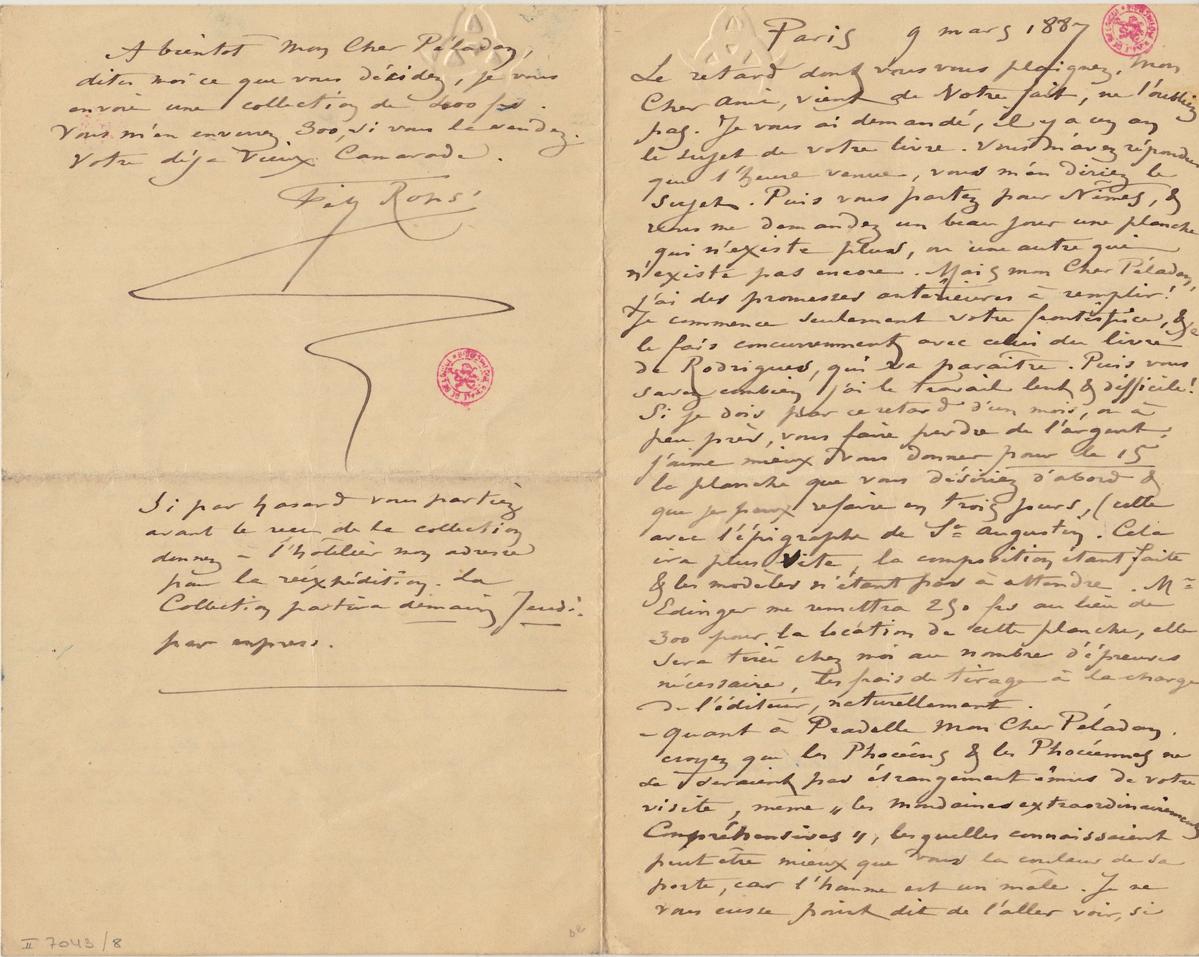 Paris 9 mars 1887
Le retard dont vous vous plaignez, Mon
Cher Ami, vient de Notre fait, ne l'oubliez
pas. Je vous ai demandé, il y a un an
le sujet de votre livre. Vous m'avez répondu
que l'heure venue, vous m'en diriez le
sujet. Puis vous partez pour Nîmes, &
vous me demandez un beau jour une planche
qui n'existe plus, ou une autre qui
n'existe pas encore. Mais mon Cher Péladan,
j'ai des promesses antérieures à remplir!
Je commence seulement votre frontispice, & je
le fais concurremment avec celui du livre
de Rodrigues, qui va paraître. Puis vous
savez combien j'ai le travail lent & difficile!
Si je dois par ce retard d'un mois, ou à
peu près, vous faire perdre de l'argent,
j'aime mieux vous donner pour le 15
la planche que vous désiriez d'abord &
que je peux refaire en trois jours, (cette
avec l'épigraphe de St augustin. Cela
ira plus vite, la composition étant faite
& les modèles n'étant pas à attendre. Mr
Edinger me remettra 250 frs au lieu de
300 pour la location de cette planche, elle
sera tirée chez moi au nombre d'épreuves
nécessaire, les frais de tirage à la charge
de l'éditeur, naturellement.
– quant à Pradelle Mon Cher Péladan,
croyez que les Phocéens & les Phocéennes ne
se seraient pas étrangement émus de votre
visite, même „ les mondaines extraordinairement
Compréhensives „, lesquelles connaissaient
peut être mieux que vous la couleur de sa
porte, car l'homme est un mâle. Je ne
vous eusse point dit de l'aller voir, si
A bientôt Mon Cher Péladan,
dites moi ce que vous décidez, je vous
envoie une collection de frs.
Vous m'en enverrez 300, si vous la vendez.
Votre déjà Vieux Camarade.
Fély Rops
Si par hasard vous partiez
avant le reçu de la collection
donnez à l'hôtelier mon adresse
pour la réexpédition. La
Collection partira demain Jeudi
par express.
II 7043 / 8